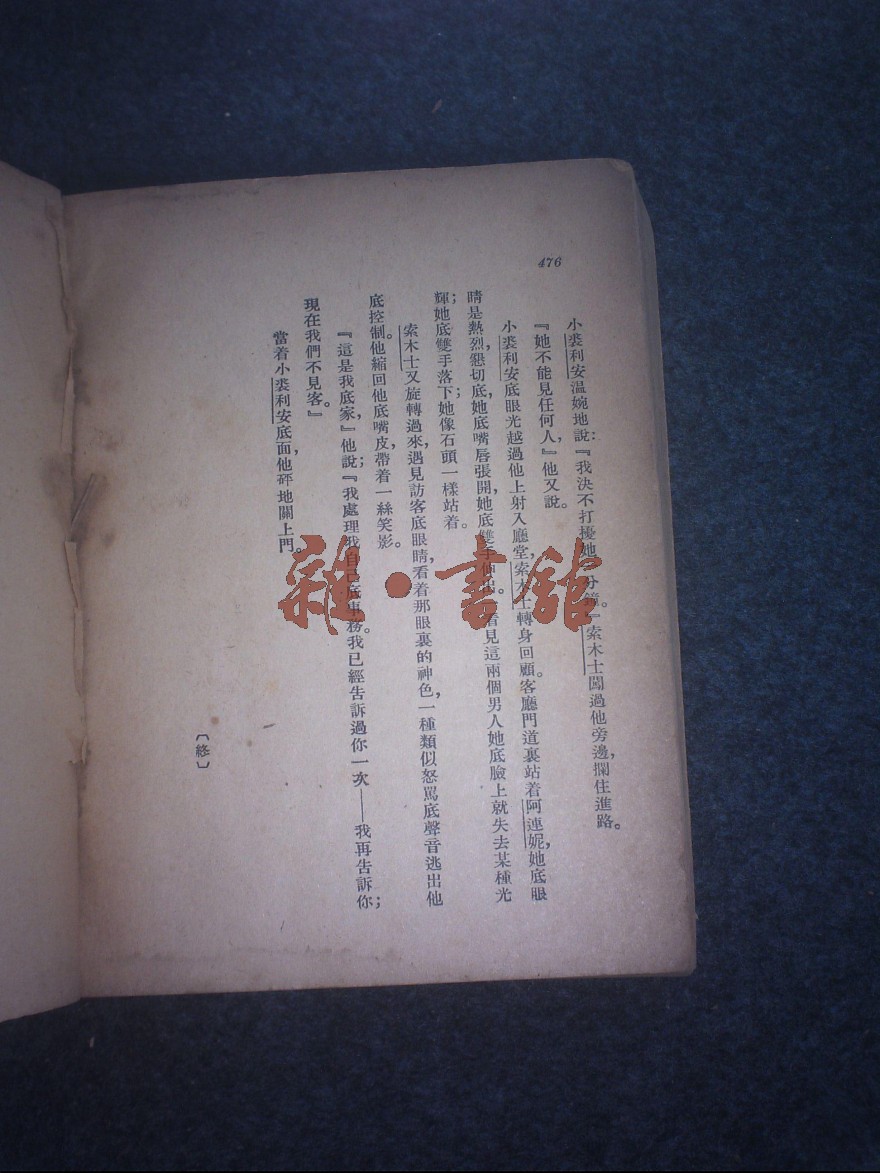 476
小裘利安温婉地說：『我決不打擾她一分鐘。』索木士闖過他旁邊，攔住進路。
『她不能見任何人，』他又說。
小裘利安底眼光越過他上射入廳堂，索木士轉身回顧。客廳門道裏站着阿連妮，她底眼
睛是熱烈，懇切底，她底嘴唇張開，她底雙手伸出。看見這兩個男人她底臉上就失去某種光
輝；她底雙手落下；她像石頭一樣站着。
索木士又旋轉過來，遇見訪客底眼睛，看着那眼裏的神色，一種類似怒駡底聲音逃出他
底控制。他縮回他底嘴皮，帶着一絲笑影。
『這是我底家，』他說；『我處理我自己底事務。我已經告訴過你一次——我再告訴你；
現在我們不見客。』
當着小裘利安底面，他砰地關上門。
〔終〕
雜·書館